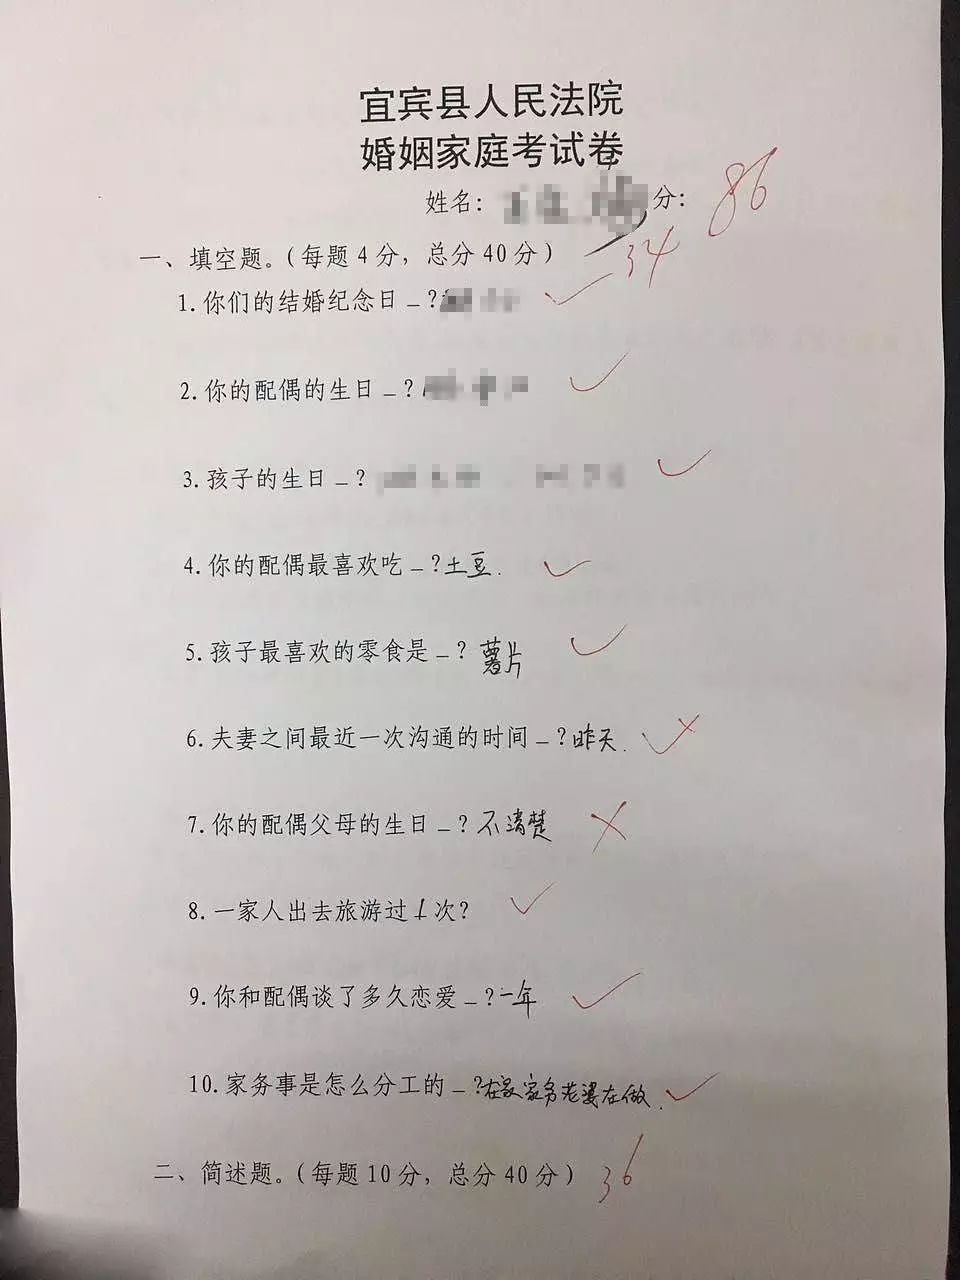 宜宾县人民法院
婚姻家庭考试卷
姓名： 分： 86
一、填空题。（每题4分，总分40分） 34
1.你们的结婚纪念日_?
2.你的配偶的生日_?
3.孩子的生日_?
4.你的配偶最喜欢吃_?土豆.
5.孩子最喜欢的零食是_?薯片
6.夫妻之间最近一次沟通的时间_?昨天.
7.你的配偶父母的生日_?不清楚
8.一家人出去旅游过1次?
9.你和配偶谈了多久恋爱_?一年
10.家务事是怎么分工的_?在家家务老婆在做.
二、简述题。（每题10分，总分40分） 36